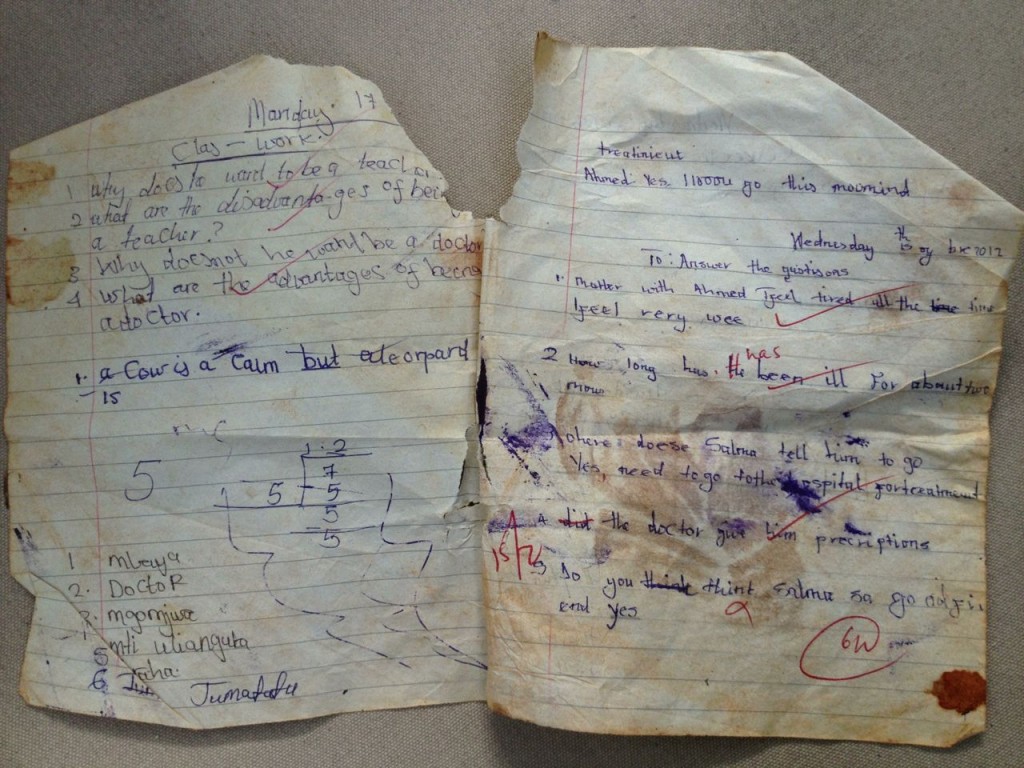 Monday 17
Clas - work.
1 Why does he want to be a teache
2 what are the disadvantages of bei
a teacher?
3 Why doesnot he want be a doctor
4 What are the advantages of being
a doctor.
1. a Cow is a Calm but a leorpard
is
1.2
7
5
5 5
5
5
1 mbaya
2. Doctor
3.
mti uliangura
5 Taha.
6 Jumatatu
treatinieut
Ahmed Yes go this mormind
Wednesday 2012
To: Answer the quetisons
1. Matter with Ahmed I feel tired all the time
I feel very wee
2 How long has he has been ill For about two
mow
where doese Salma tell him to go
Yes, need to go to the hospital for treatment
4 did the doctor give him precriptions
15/
5 Do you think think Salma sa go
end yes